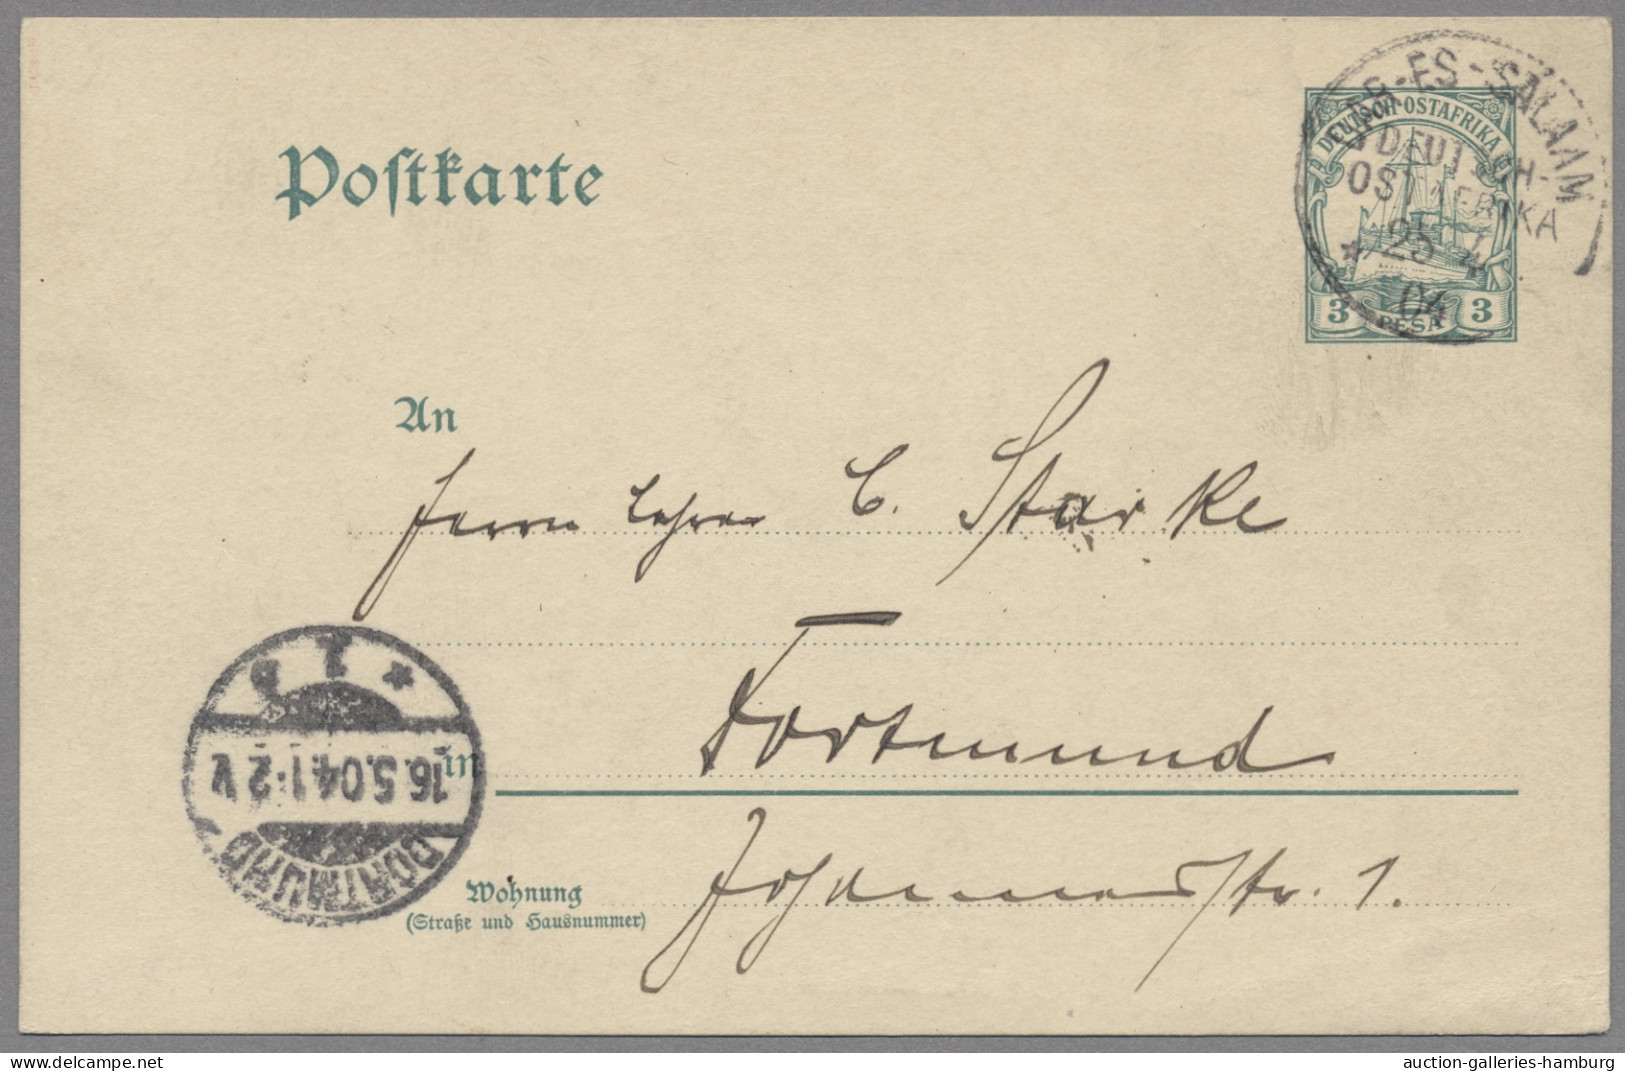 DAR-ES-SALAAM
DEUTSCH-
OSTAFRIKA
25 4
04
DEUTSCH-OSTAFRIKA
3 PESA 3
Postkarte
An
Herrn Lehrer C. Starke
Dortmund
in
Johannesstr. 1.
Wohnung
(Straße und Hausnummer)
DORTMUND
16.5.04.1-2 V
* 1
delcampe.net
auction-galleries-hamburg